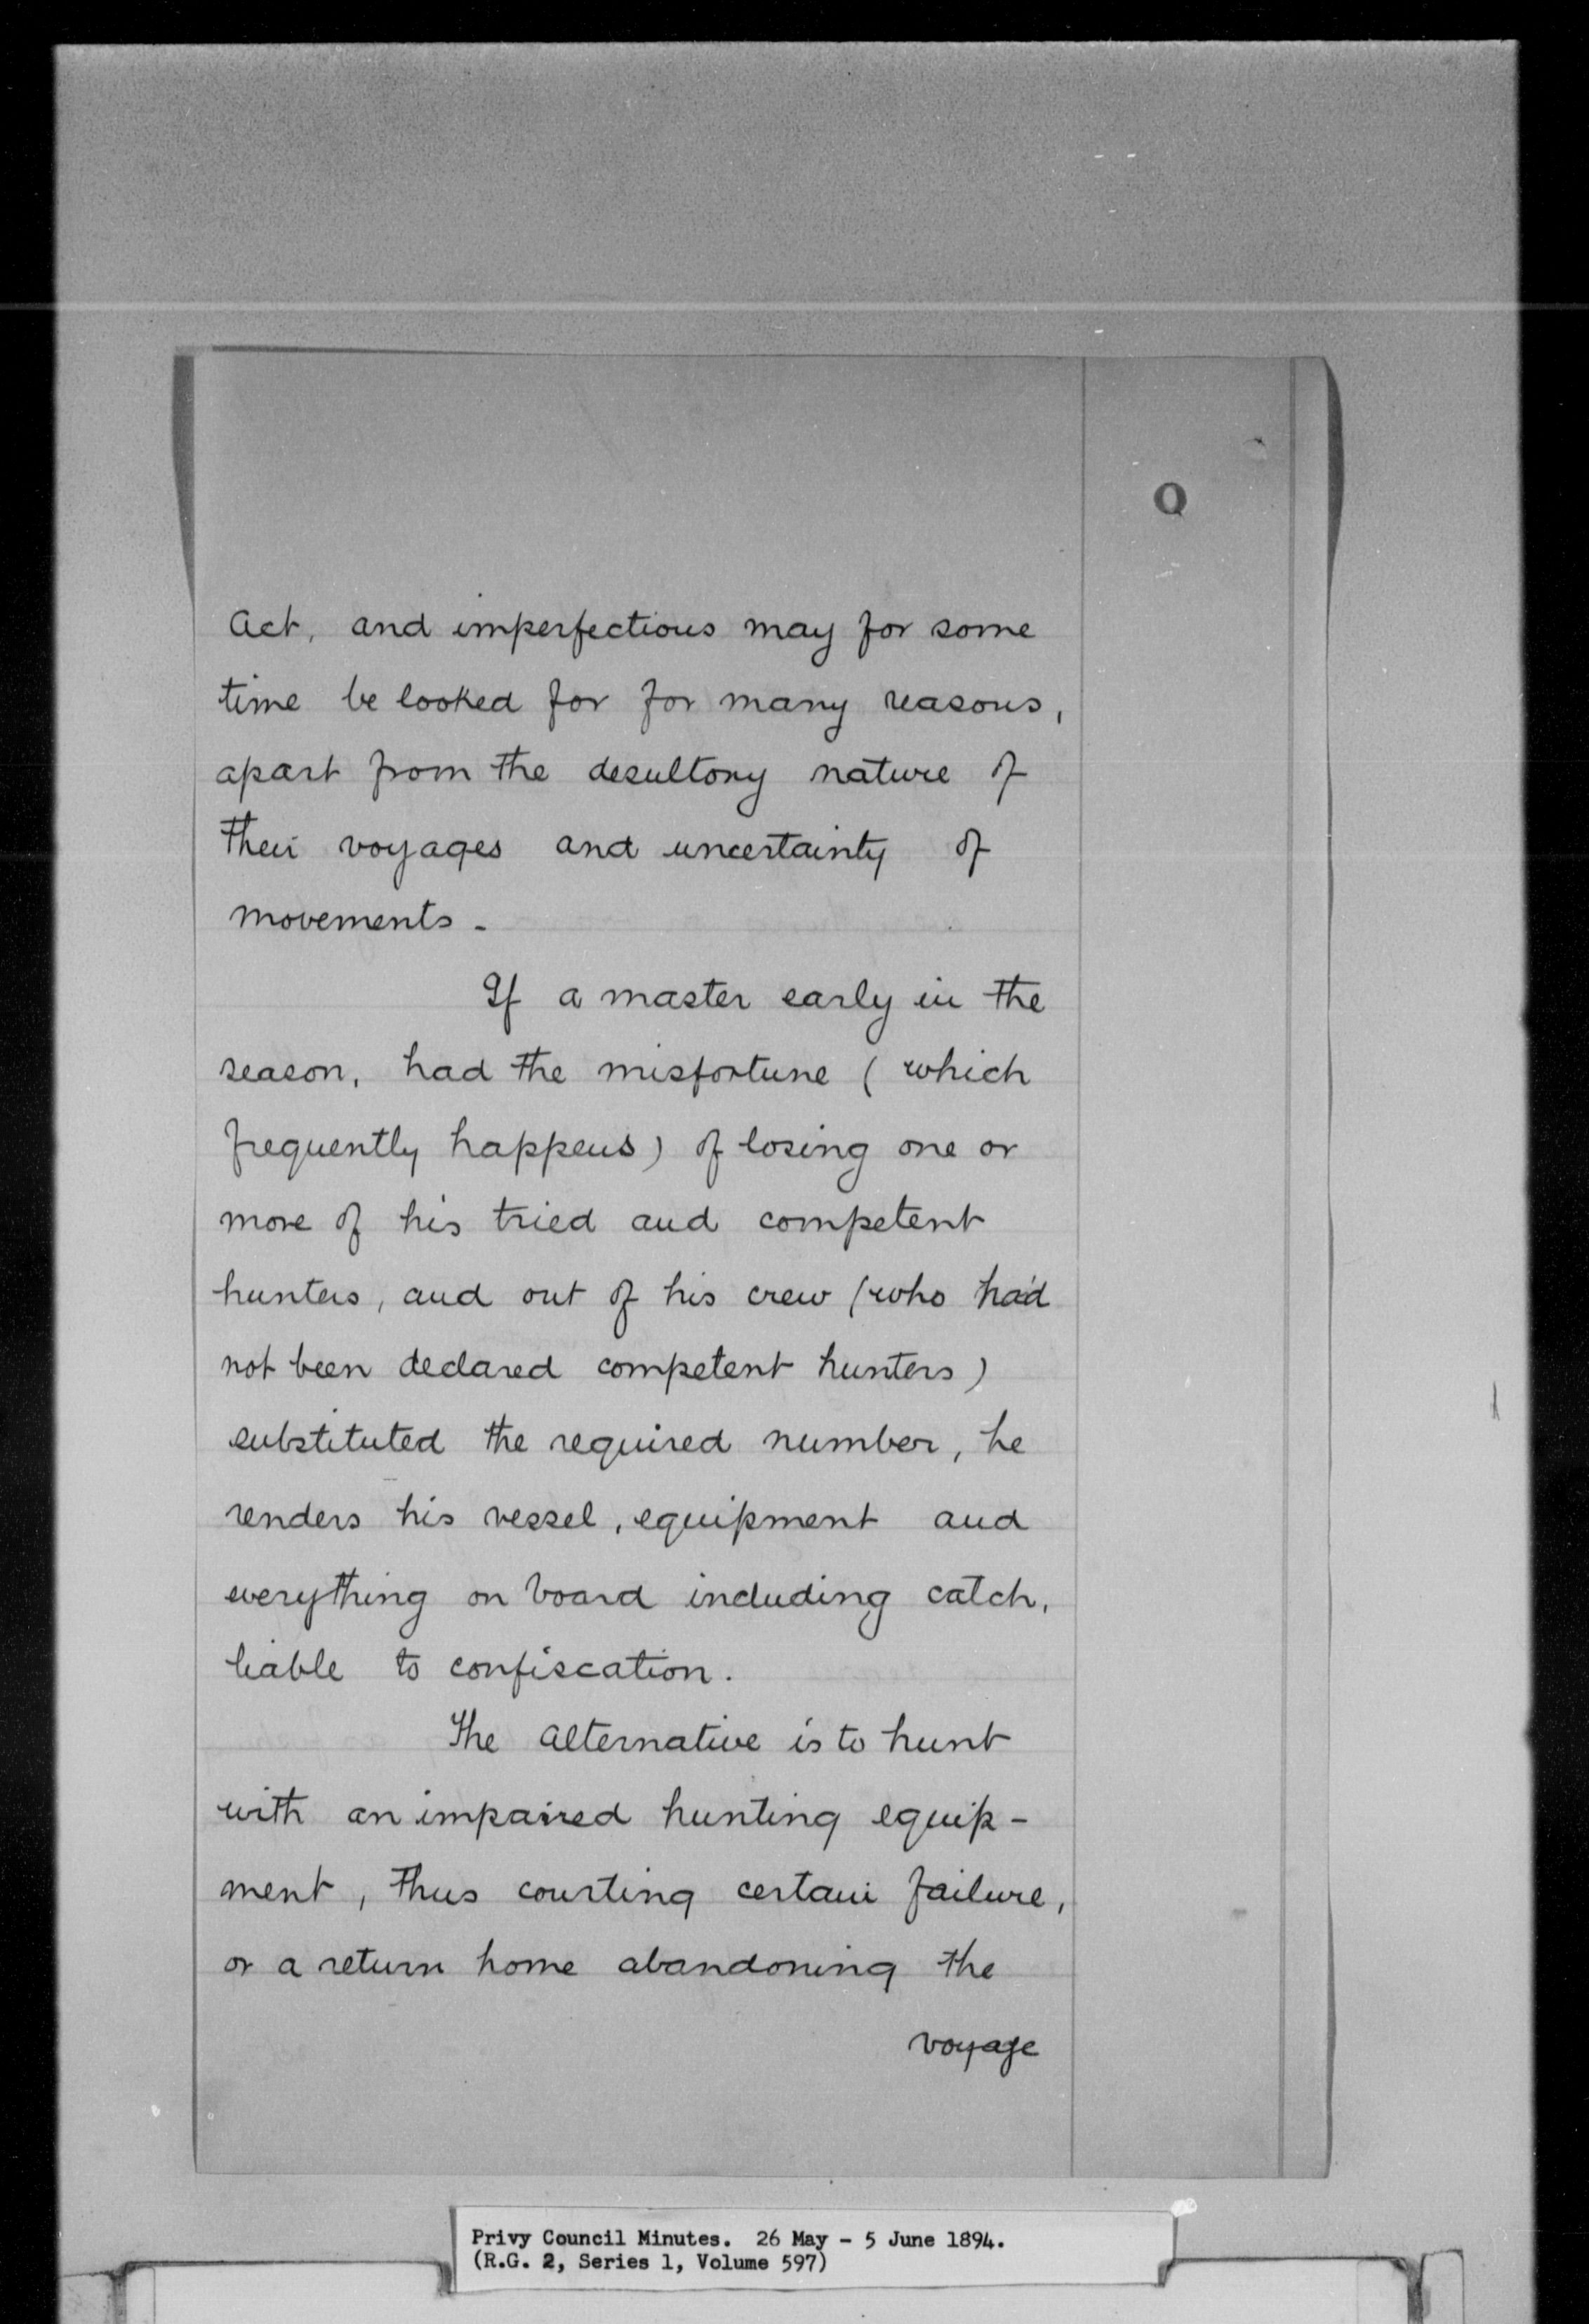 Q
Act, and imperfections may for some
time be looked for for many reasons,
apart from the desultory nature of
their voyages and uncertainty of
movements -
If a master early in the
season, had the misfortune (which
frequently happens) of losing one or
more of his tried and competent
hunters, and out of his crew (who had
not been declared competent hunters)
substituted the required number, he
renders his vessel, equipment and
everything on board including catch,
liable to confiscation.
The alternative is to hunt
with an impaired hunting equip-
ment, thus courting certain failure,
or a return home abandoning the
voyage
Privy Council Minutes. 26 May - 5 June 1894.
(R.G. 2, Series 1, Volume 597)